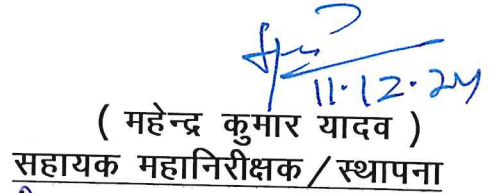 11.12.24
( महेन्द्र कुमार यादव )
सहायक महानिरीक्षक/स्थापना